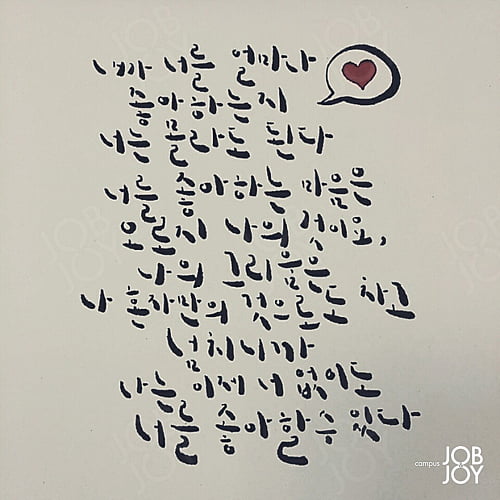 내가 너를 얼마나
좋아하는지
너는 몰라도 된다
너를 좋아하는 마음은
오로지 나의 것이요,
나의 그리움은
나 혼자만의 것으로도 차고
넘치니까
나는 이제 너 없이도
너를 좋아할 수 있다
campus JOB JOY